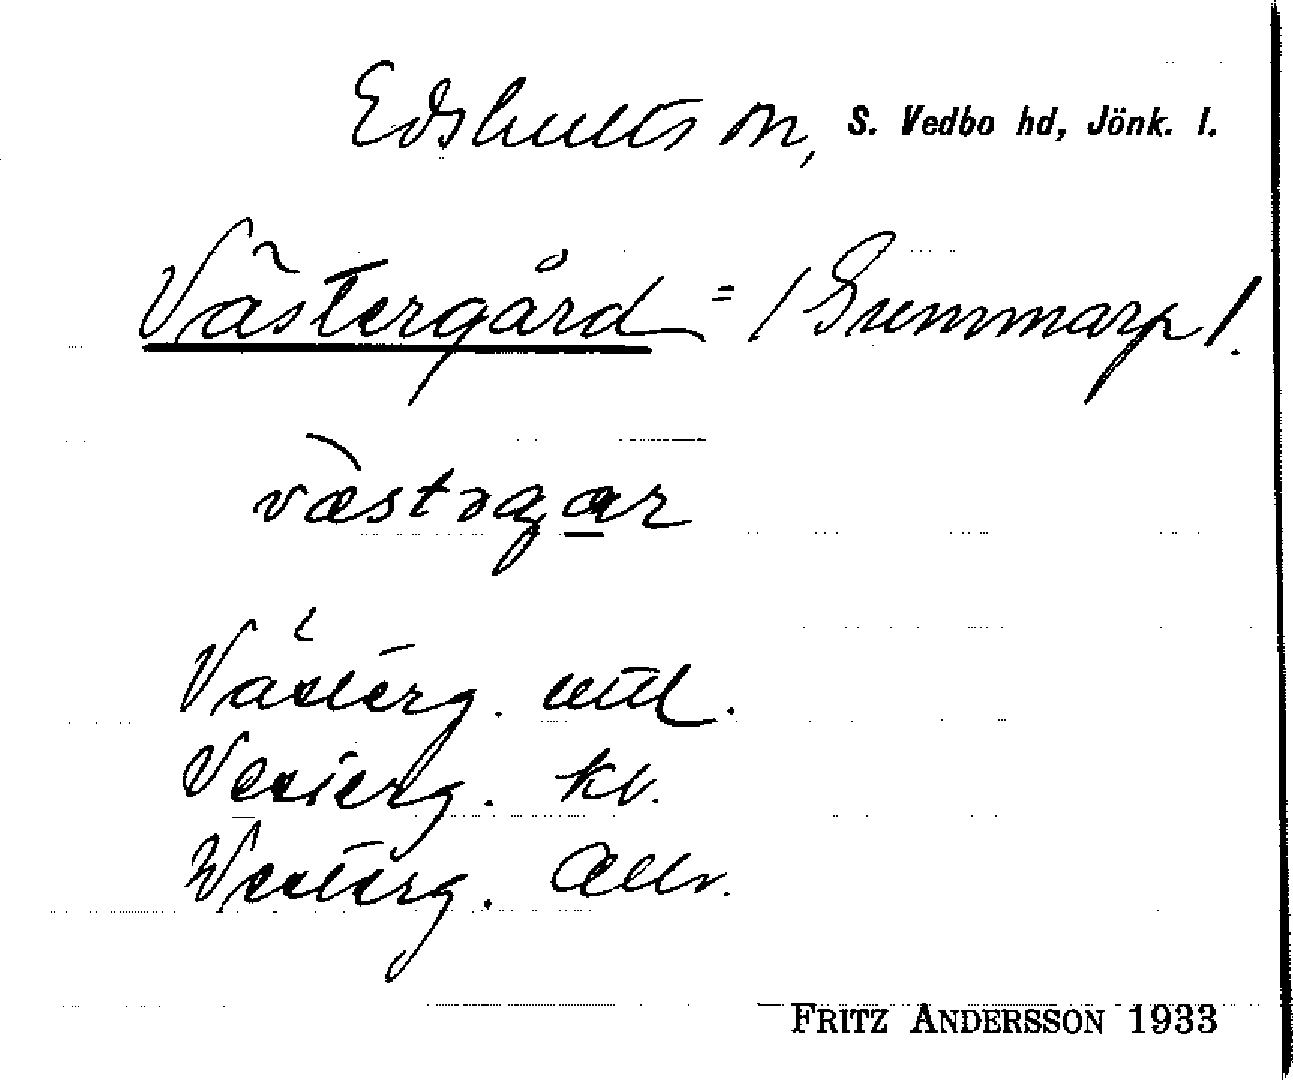 Edshults sn, S. Vedbo hd, Jönk. l.
Västergård = / Gummarp /.
væstrgar
Västerg. uttl.
Vesterg. kv.
Westerg. Allv.
FRITZ ANDERSSON 1933